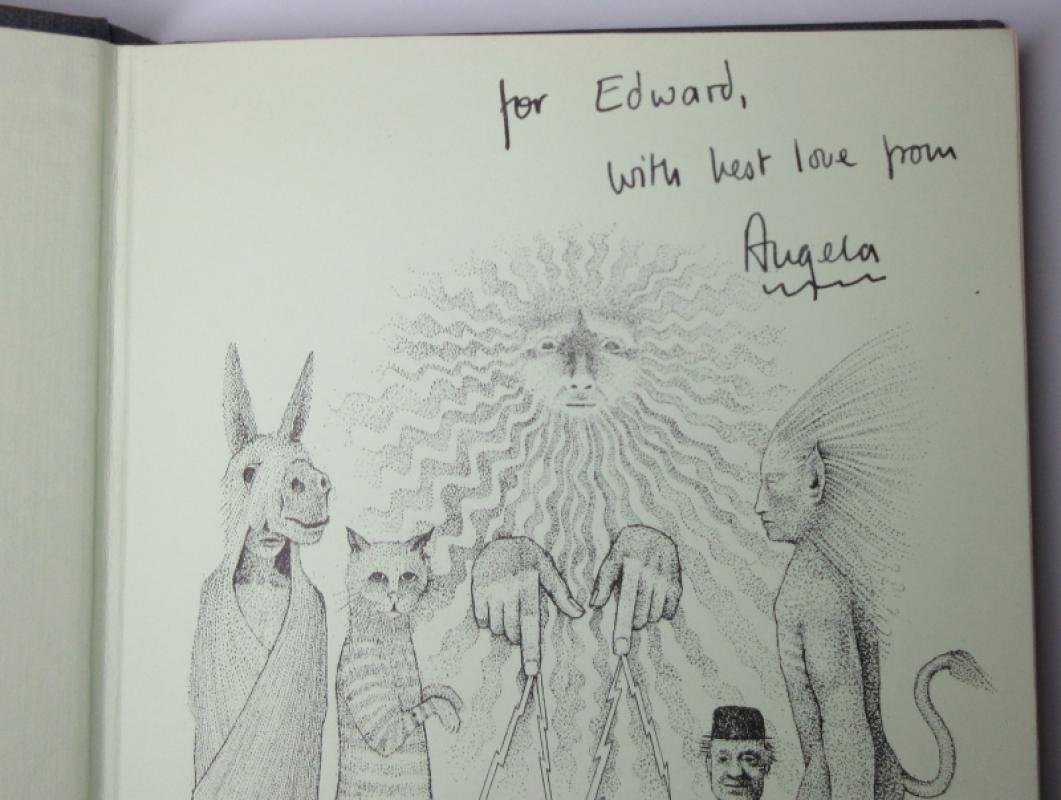 for Edward,
with best love from
Angela